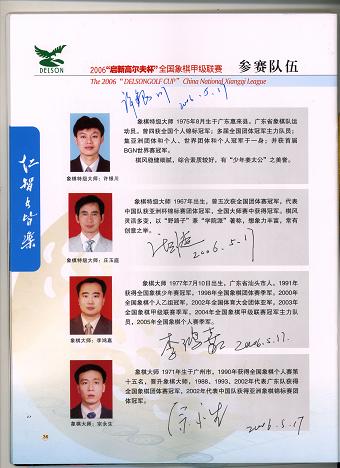 DELSON
2006“启新高尔夫杯”全国象棋甲级联赛 参赛队伍
The 2006 “DELSONGOLF CUP” China National Xiangqi League
许银川 2006.5.17
仁智者皆乐
象棋特级大师：许银川
象棋特级大师 1975年8月生于广东惠来县。广东省象棋队运
动员。曾四获全国个人锦标冠军；多届全国团体冠军主力队员；
集亚洲团体和个人、世界团体和个人冠军于一身；并获首届
BGN世界赛冠军。
棋风稳健细腻，综合素质较好。有“少年姜太公”之美誉。
象棋特级大师：庄玉庭
象棋特级大师 1967年出生。曾五次获全国团体赛冠军，代表
中国队获亚洲杯锦标赛团体冠军，全国大师赛中获得冠军。棋风
灵活多变，以“野路子”兼“学院派”著称，想象力丰富，常有
创意之举。
2006.5.17
象棋大师：李鸿嘉
象棋大师 1977年7月10日出生，广东省汕头市人。1991年
获得全国象棋少年赛冠军，1998年全国象棋团体赛季军，2000年
全国象棋个人乙组冠军，2002年全国体育大会团体亚军，2003年
全国象棋甲级联赛季军，2004年全国象棋甲级联赛冠军主力队
员，2005年全国象棋个人赛季军。
李鸿嘉 2006.5.17.
象棋大师：宗永生
象棋大师 1971年生于广州市。1990年获得全国象棋个人赛第
十五名，晋升象棋大师，1988、1993、2002年代表广东队获得
全国象棋团体赛冠军，2002年代表中国队获得亚洲象棋锦标赛团
体冠军。
宗永生 2006.5.17
36